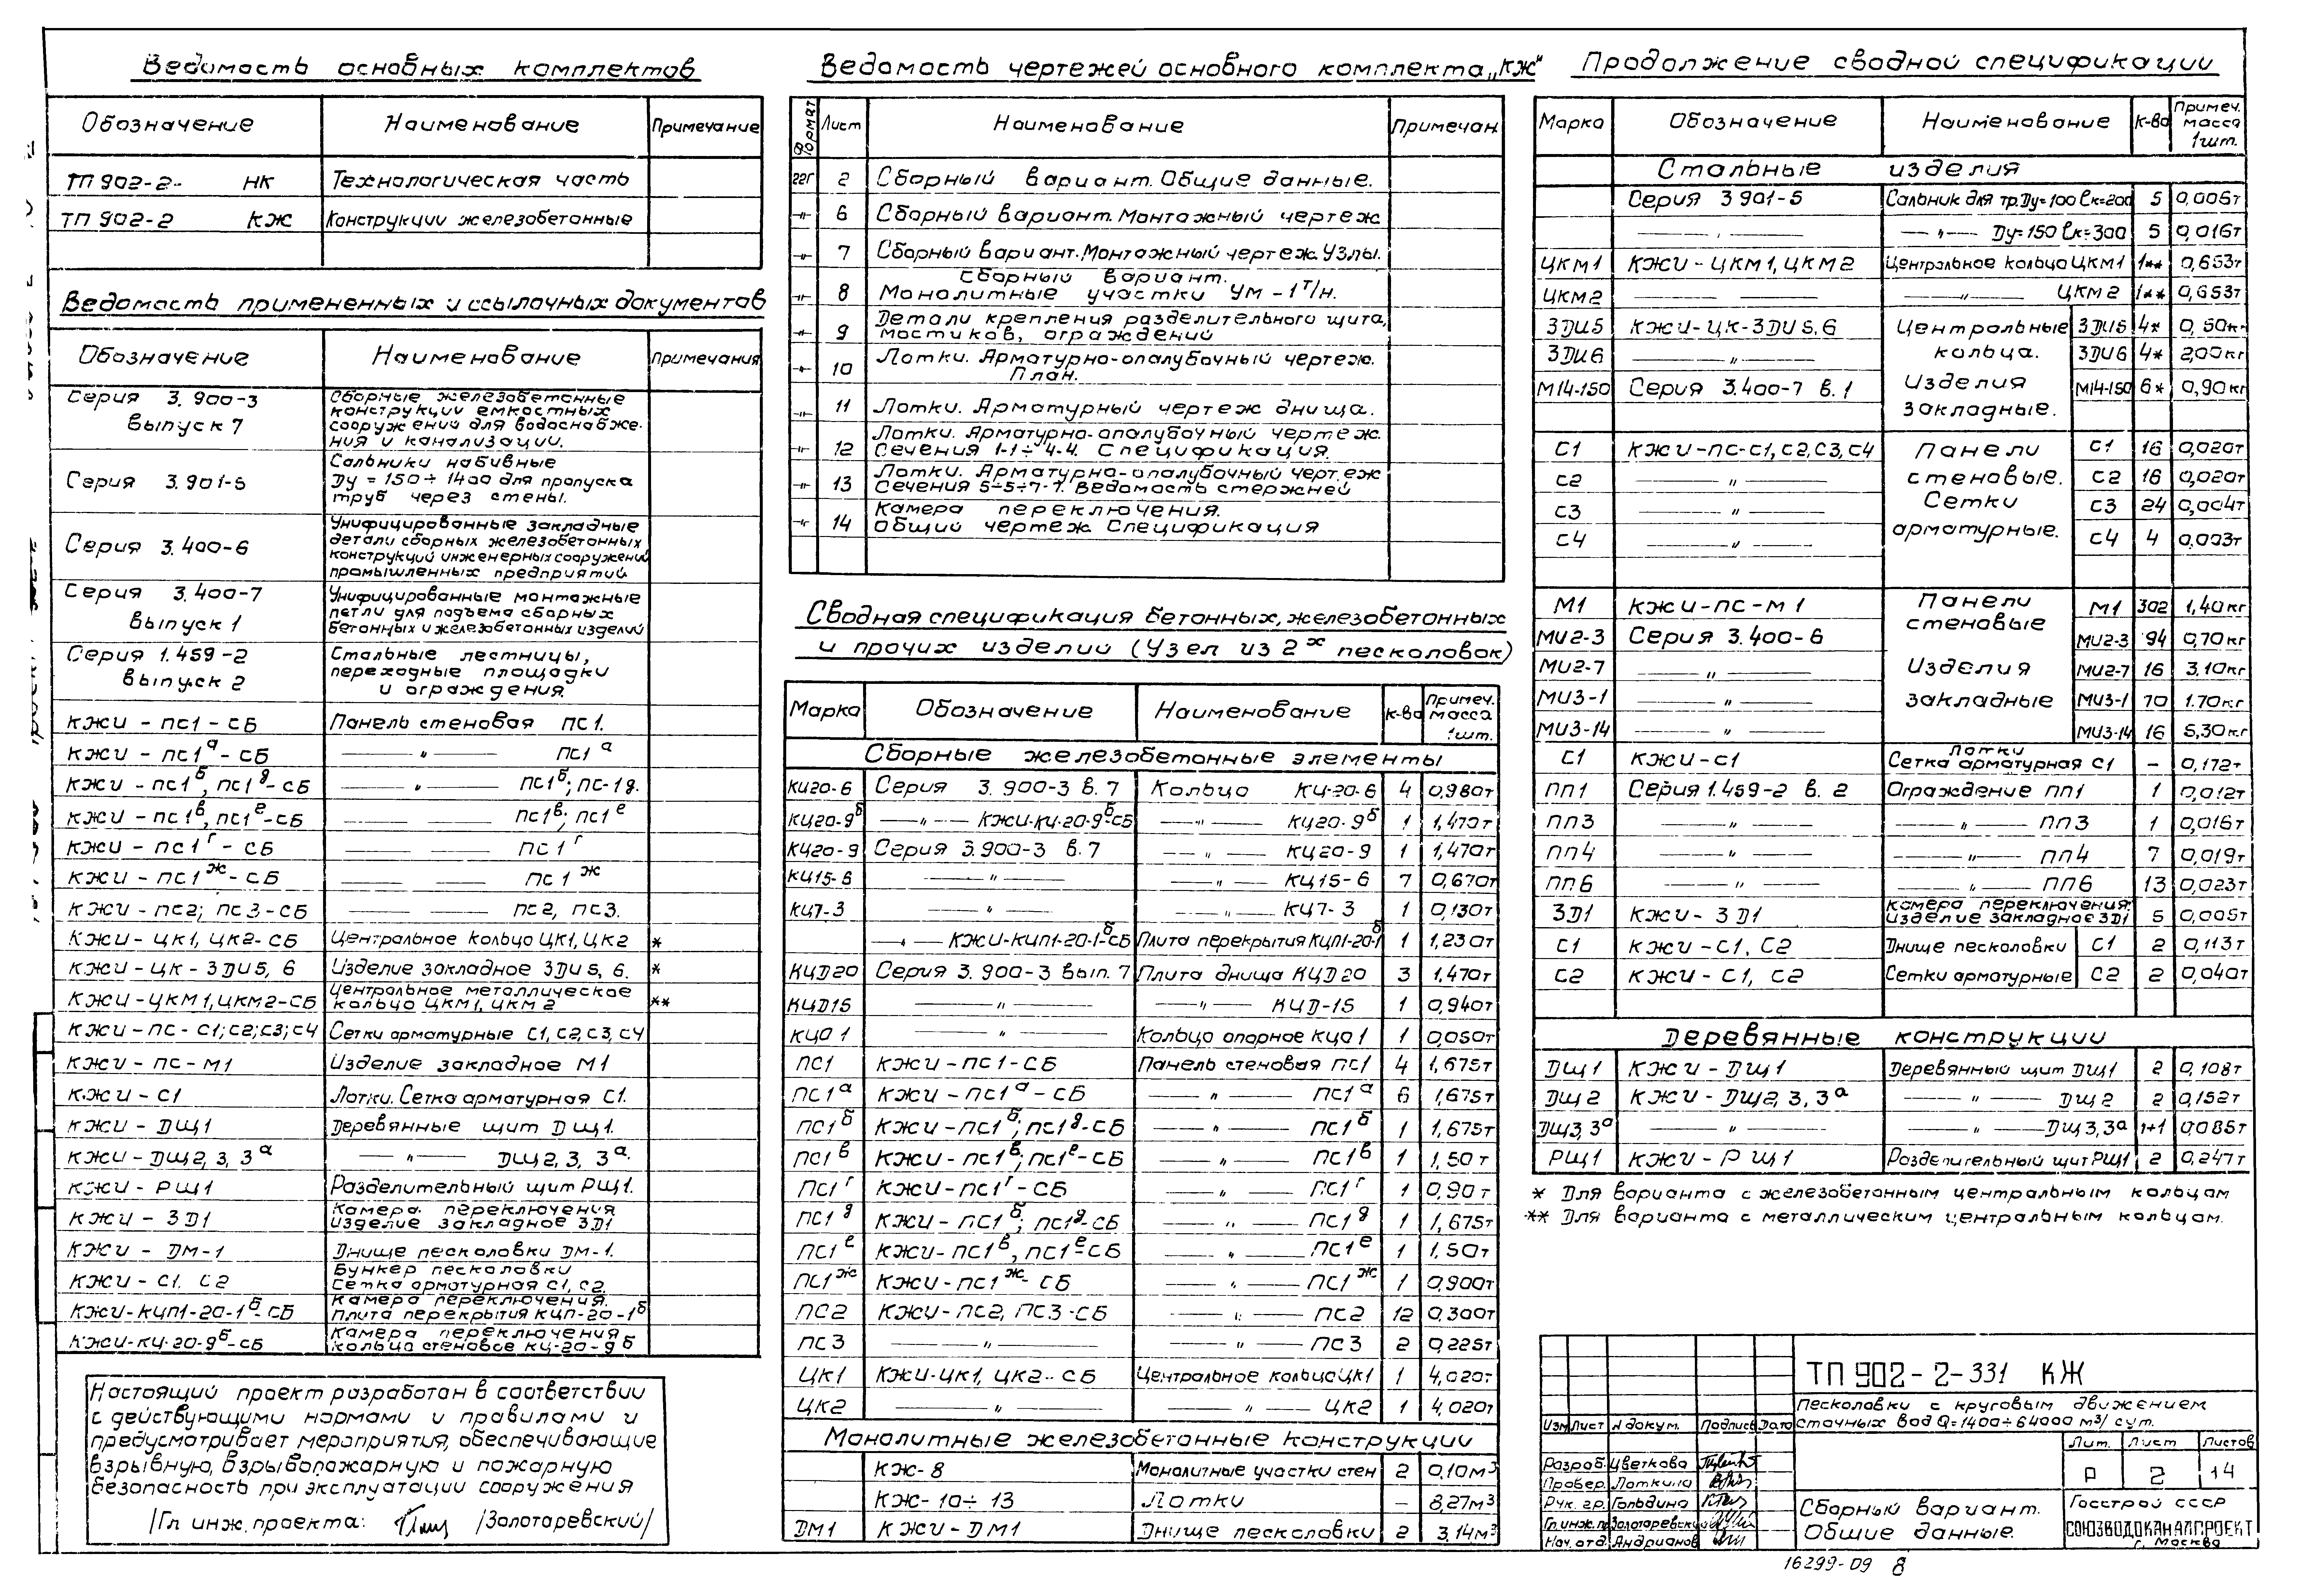 Ведомость основных комплектов
Обозначение Наименование Примечание
ТП 902-2- НК Технологическая часть
ТП 902-2 КЖ Конструкции железобетонные
Ведомость примененных и ссылочных документов
Обозначение Наименование Примечания
Серия 3.900-3 выпуск 7 Сборные железобетонные
конструкции емкостных
сооружений для водоснабже-
ния и канализации.
Серия 3.901-5 Сальники набивные
Ду = 150÷1400 для пропуска
труб через стены.
Серия 3.400-6 Унифицированные закладные
детали сборных железобетонных
конструкций инженерных сооружений
промышленных предприятий
Серия 3.400-7 выпуск 1 Унифицированные монтажные
петли для подъема сборных
бетонных и железобетонных изделий
Серия 1.459-2 выпуск 2 Стальные лестницы,
переходные площадки
и ограждения.
КЖИ-ПС1-СБ Панель стеновая ПС1.
КЖИ-ПС1а-СБ —〃— ПС1а
КЖИ-ПС1б, ПС1д-СБ —〃— ПС1б; ПС-1д.
КЖИ-ПС1в, ПС1е-СБ ПС1в; ПС1е
КЖИ-ПС1г-СБ ПС1г
КЖИ-ПС1ж-СБ ПС1ж
КЖИ-ПС2; ПС3-СБ ПС2, ПС3.
КЖИ-ЦК1, ЦК2-СБ Центральное кольцо ЦК1, ЦК2 *
КЖИ-ЦК-3DИ5, 6 Изделие закладное 3DИ5, 6. *
КЖИ-ЦКМ1, ЦКМ2-СБ Центральное металлическое
кольцо ЦКМ1, ЦКМ2 **
КЖИ-ПС-С1; С2; С3; С4 Сетки арматурные С1, С2, С3, С4
КЖИ-ПС-М1 Изделие закладное М1
КЖИ-С1 Лотки. Сетка арматурная С1.
КЖИ-ДЩ1 Деревянные щит ДЩ1.
КЖИ-ДЩ2, 3, 3а —〃— ДЩ2, 3, 3а.
КЖИ-РЩ1 Разделительный щит РЩ1.
КЖИ-3D1 Камера переключения
Изделие закладное 3D1
КЖИ-DМ-1 Днище песколовки DМ-1.
КЖИ-С1. С2 Бункер песколовки
Сетка арматурная С1, С2.
КЖИ-КЦП1-20-1б-СБ Камера переключения.
Плита перекрытия КЦП-20-1б
КЖИ-КЦ-20-9б-СБ Камера переключения
кольцо стеновое КЦ-20-9б
Настоящий проект разработан в соответствии
с действующими нормами и правилами и
предусматривает мероприятия, обеспечивающие
взрывную, взрывопожарную и пожарную
безопасность при эксплуатации сооружения
/Гл. инж. проекта: /Золотаревский/
Ведомость чертежей основного комплекта „КЖ"
Формат Лист Наименование Примечан.
22Г 2 Сборный вариант. Общие данные.
—〃— 6 Сборный вариант. Монтажный чертеж
—〃— 7 Сборный вариант. Монтажный чертеж. Узлы.
—〃— 8 Сборный вариант.
Монолитные участки УМ-1т/н.
—〃— 9 Детали крепления разделительного щита,
мостиков, ограждений
—〃— 10 Лотки. Арматурно-опалубочный чертеж.
План.
—〃— 11 Лотки. Арматурный чертеж днища.
—〃— 12 Лотки. Арматурно-опалубочный чертеж.
Сечения 1-1÷4-4. Спецификация.
—〃— 13 Лотки. Арматурно-опалубочный чертеж
Сечения 5-5÷7-7. Ведомость стержней
—〃— 14 Камера переключения.
Общий чертеж. Спецификация
Сводная спецификация бетонных, железобетонных
и прочих изделий (Узел из 2х песколовок)
Марка Обозначение Наименование К-во Примеч. масса 1шт.
Сборные железобетонные элементы
КЦ20-6 Серия 3.900-3 в. 7 Кольцо КЦ-20-6 4 0,980т
КЦ20-9б —〃— КЖИ-КЦ-20-9б-СБ —〃— КЦ20-9б 1 1,470т
КЦ20-9 Серия 3.900-3 в. 7 —〃— КЦ20-9 1 1,470т
КЦ15-6 —〃— —〃— КЦ15-6 7 0,670т
КЦ7-3 —〃— —〃— КЦ7-3 1 0,130т
—〃— КЖИ-КЦП1-20-1б-СБ Плита перекрытия КЦП1-20-1б 1 1,230т
КЦD20 Серия 3.900-3 вып. 7 Плита днища КЦD20 3 1,470т
КЦD15 —〃— —〃— КЦD-15 1 0,940т
КЦО1 —〃— Кольцо опорное КЦО1 1 0,050т
ПС1 КЖИ-ПС1-СБ Панель стеновая ПС1 4 1,675т
ПС1а КЖИ-ПС1а-СБ —〃— ПС1а 6 1,675т
ПС1б КЖИ-ПС1б; ПС1д-СБ —〃— ПС1б 1 1,675т
ПС1в КЖИ-ПС1в; ПС1е-СБ —〃— ПС1в 1 1,50т
ПС1г КЖИ-ПС1г-СБ —〃— ПС1г 1 0,90т
ПС1д КЖИ-ПС1б; ПС1д-СБ —〃— ПС1д 1 1,675т
ПС1е КЖИ-ПС1в, ПС1е-СБ —〃— ПС1е 1 1,50т
ПС1ж КЖИ-ПС1ж-СБ —〃— ПС1ж 1 0,900т
ПС2 КЖИ-ПС2, ПС3-СБ —〃— ПС2 12 0,300т
ПС3 —〃— —〃— ПС3 2 0,225т
ЦК1 КЖИ-ЦК1, ЦК2-СБ Центральное кольцо ЦК1 1 4,020т
ЦК2 —〃— —〃— ЦК2 1 4,020т
Монолитные железобетонные конструкции
КЖ-8 Монолитные участки стен 2 0,10м³
КЖ-10÷13 Лотки — 8,27м³
DМ1 КЖИ-DМ1 Днище песколовки 2 3,14м³
Продолжение сводной спецификации
Марка Обозначение Наименование К-во Примеч. масса 1шт.
Стальные изделия
Серия 3.901-5 Сальник для тр. Ду=100 ℓк=200 5 0,006т
—〃— —〃— Ду=150 ℓк=300 5 0,016т
ЦКМ1 КЖИ-ЦКМ1, ЦКМ2 Центральное кольцо ЦКМ1 1** 0,653т
ЦКМ2 —〃— ЦКМ2 1** 0,653т
3DИ5 КЖИ-ЦК-3DИ5, 6 Центральные 3DИ5 4* 0,50кг
3DИ6 —〃— кольца. 3DИ6 4* 2,00кг
М14-150 Серия 3.400-7 в. 1 Изделия М14-150 6* 0,90кг
закладные.
С1 КЖИ-ПС-С1, С2, С3, С4 Панели С1 16 0,020т
С2 —〃— стеновые. С2 16 0,020т
С3 —〃— Сетки С3 24 0,004т
С4 —〃— арматурные. С4 4 0,003т
М1 КЖИ-ПС-М1 Панели М1 302 1,40кг
стеновые
МИ2-3 Серия 3.400-6 МИ2-3 94 0,70кг
МИ2-7 —〃— Изделия МИ2-7 16 3,10кг
МИ3-1 —〃— закладные МИ3-1 70 1.70кг
МИ3-14 —〃— МИ3-14 16 5,30кг
С1 КЖИ-С1 Лотки
Сетка арматурная С1 — 0,172т
ПП1 Серия 1.459-2 в. 2 Ограждение ПП1 1 0,012т
ПП3 —〃— —〃— ПП3 1 0,016т
ПП4 —〃— —〃— ПП4 7 0,019т
ПП6 —〃— —〃— ПП6 13 0,023т
3D1 КЖИ-3D1 Камера переключения.
Изделие закладное 3D1 5 0,005т
С1 КЖИ-С1, С2 Днище песколовки С1 2 0,113т
С2 КЖИ-С1, С2 Сетки арматурные С2 2 0,040т
Деревянные конструкции
ДЩ1 КЖИ-ДЩ1 Деревянный щит ДЩ1 2 0,108т
ДЩ2 КЖИ-ДЩ2, 3, 3а —〃— ДЩ2 2 0,152т
ДЩ3, 3а —〃— —〃— ДЩ3, 3а 1+1 0,085т
РЩ1 КЖИ-РЩ1 Разделительный щит РЩ1 2 0,247т
* Для варианта с железобетонным центральным кольцом
** Для варианта с металлическим центральным кольцом.
ТП 902-2-331 КЖ
Песколовки с круговым движением
сточных вод Q=1400÷64000 м³/сут.
Изм Лист N докум. Подпись Дата
Лит. Лист Листов
Р 2 14
Разраб. Цветкова
Провер. Лоткина
Рук. гр. Гольдина
Гл.инж.пр Золотаревский
Нач. отд. Андрианов
Сборный вариант.
Общие данные.
Госстрой СССР
СОЮЗВОДОКАНАЛПРОЕКТ
г. Москва
16299-09 8